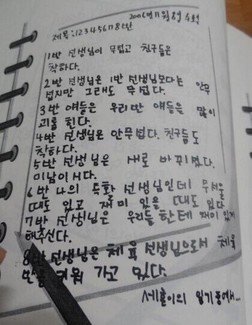 2006년 11월 8일 수요일
제목: 1 2 3 4 5 6 7 8반
1반 선생님이 무섭고 친구들은
착하다.
2반 선생님은 1반 선생님보다는 안무
섭지만 그래도 무섭다.
3반 애들은 우리반 애들은 많이
괴롭힌다.
4반 선생님은 안무섭다. 친구들도
착하다.
5반 선생님은 새로 바끼셨다.
미남이시다.
6반 나의 특활 선생님인데 무서울
때도 있고 재미 있을 때도 있다
7반 선생님은 우리들 한테 재미 있게
해주신다.
8반 선생님은 체육 선생님으로서 체육
반을 키워 가고 있다.
세훈이의 일기중에서...